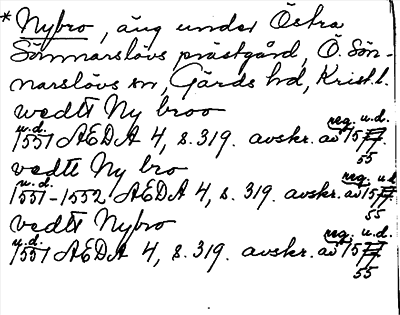 * Nybro, äng under Östra
Sönnarslövs prästgård, Ö. Sön-
narslövs sn, Gärds hd, Krist. l.
wedtt Ny broo
u.d. reg. u.d.
1551 AEDA 4, s. 319. avskr. av 1577.
55
vedtt Ny bro
u.d. reg. u.d.
1551-1552 AEDA 4, s. 319. avskr. av 1577.
55
vedtt Nybro
u.d. reg. u.d.
1551 AEDA 4, s. 319. avskr. av 1577.
55